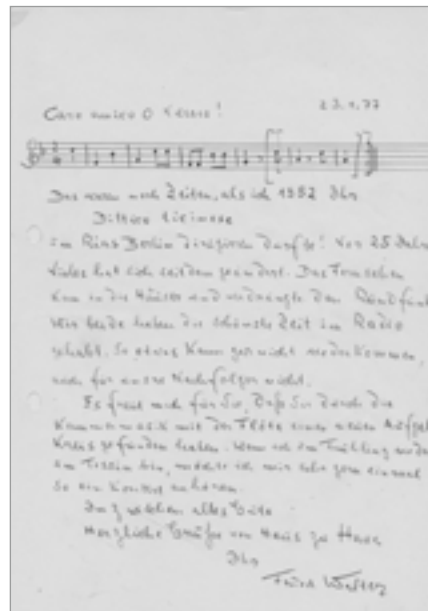 Caro amico O 23.1.77
Das waren noch Zeiten, als ich 1952 Ihr
Dittico
im Rias Berlin dirigieren durfte! Vor 25 Jahren
Vieles hat sich seitdem geändert. Das Fernsehen
kam in die Häuser und verdrängte den Rundfunk
Wir beide haben die schönste Zeit im Radio
gehabt. So etwas kann gar nicht wiederkommen,
auch für unsre Nachfolger nicht.
Es freut mich für Sie, daß Sie durch die
Kammermusik mit der Flöte einen neuen
Kreis gefunden haben. Wenn ich im Frühling wieder
im Tessin bin, möchte ich mir sehr gern einmal
so ein Konzert anhören.
alles Gute
Herzliche Grüße von Haus zu Haus
Ihr
Fried Walter